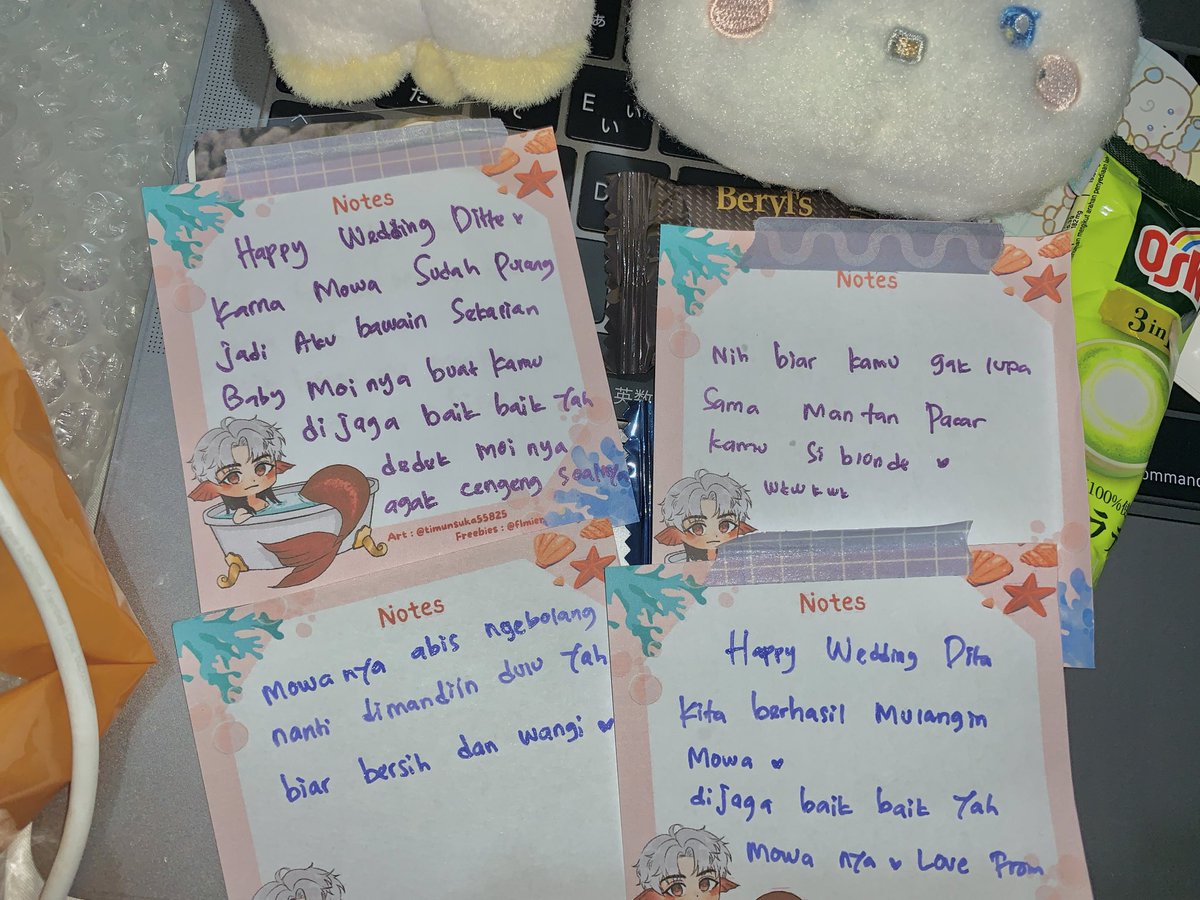 Notes
Happy Wedding Ditte
Karna Mowa Sudah Pulang
jadi Aku bawain Sekalian
Baby Moi nya buat kamu
dijaga baik baik Yah
dedek moi nya
agak cengeng soalnya
Art : @timunsuka55825
Freebies : @flmier
Notes
Nih biar kamu gak lupa
Sama Mantan Pacar
kamu Si blonde
wkwkwk
Notes
Mowa nya abis ngebolang
nanti dimandiin dulu Yah
biar bersih dan wangi
Notes
Happy Wedding Dita
Kita berhasil Mulangin
Mowa
dijaga baik baik Yah
Mowa nya Love From
Beryl's
3 in
100%
E
い
D
た
英数
ommand